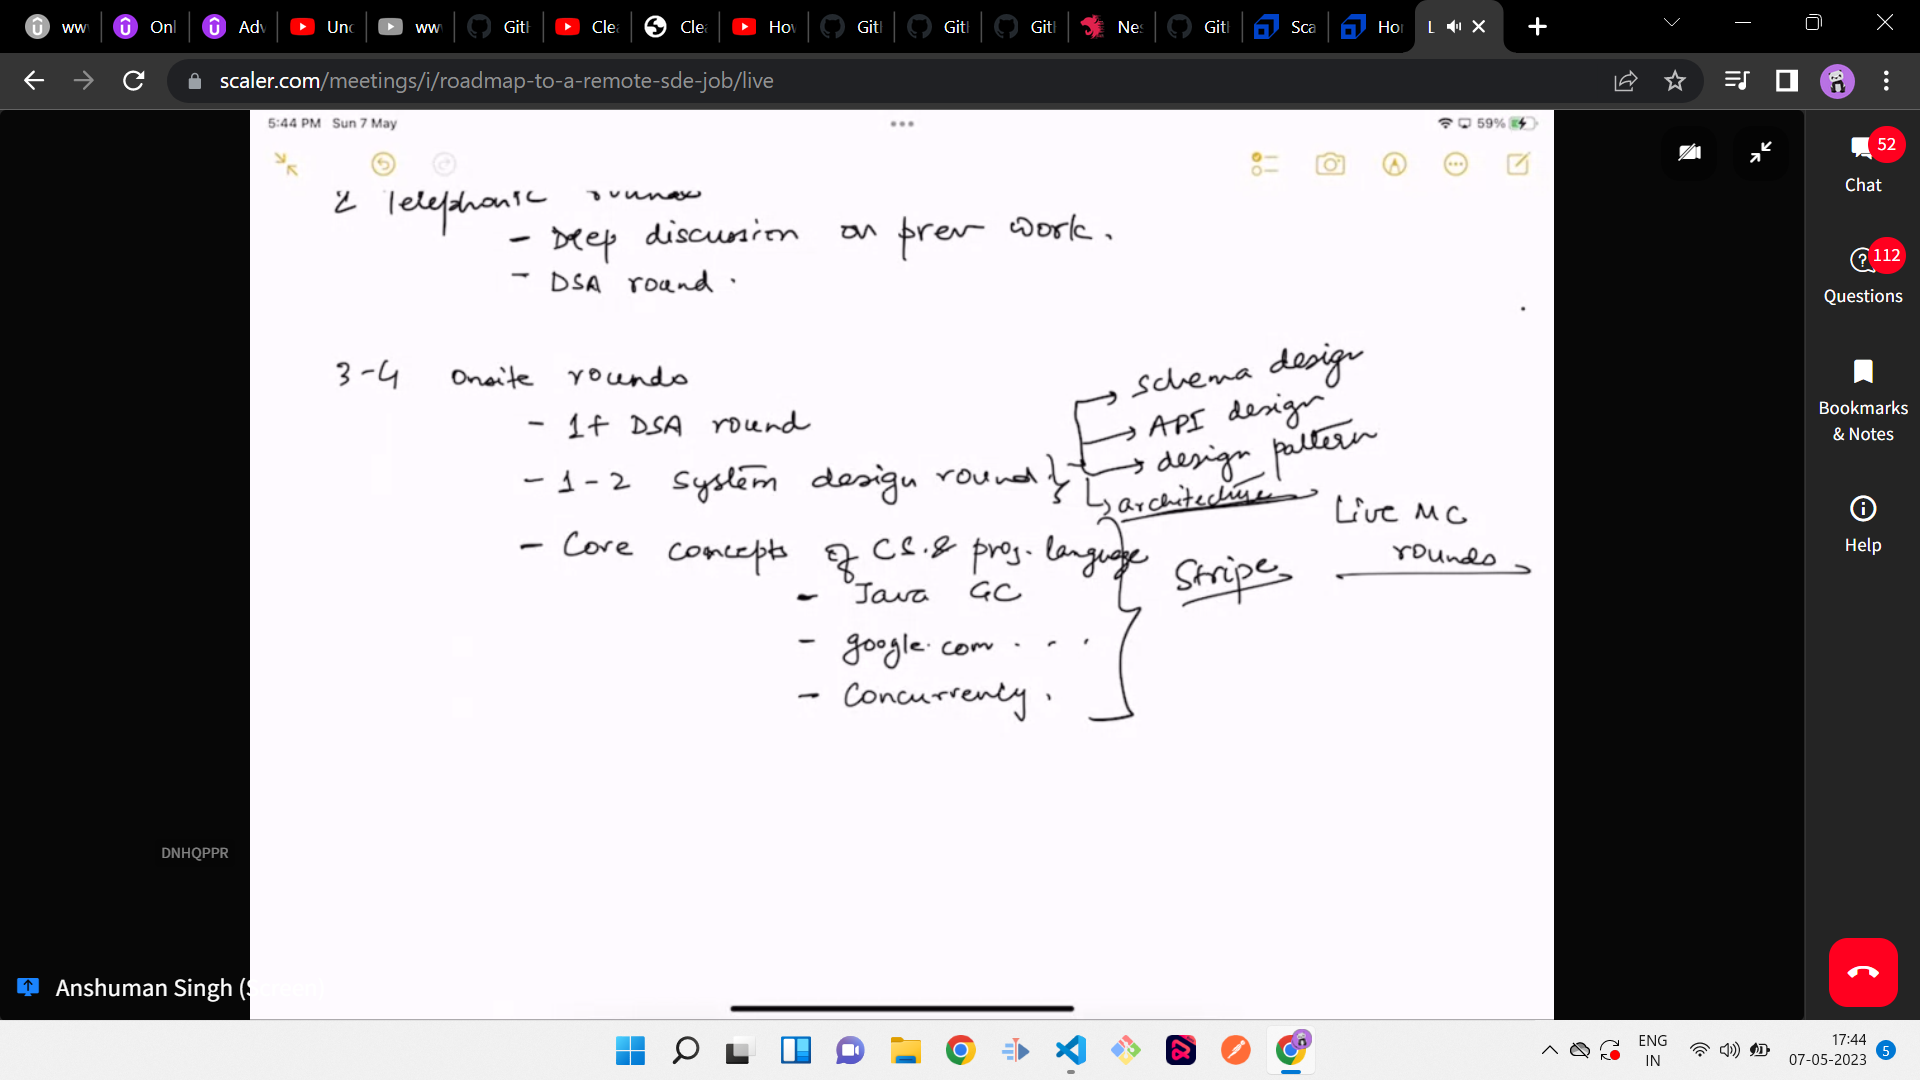 ww
Onl
Adv
Unc
ww
Gitl
Clea
Clea
Hov
Gitl
Gitl
Gitl
Nes
Gitl
Sca
Hor
L
scaler.com/meetings/i/roadmap-to-a-remote-sde-job/live
5:44 PM Sun 7 May
59%
2 Telephonic rounds
- Deep discussion on prev work.
- DSA round.
3-4 Onsite rounds
- 1+ DSA round
- 1-2 System design round
→ schema design
→ API design
→ design pattern
→ architecture
- Core concepts of CS. & prog. language
- Java GC
- google.com . . .
- Concurrency.
Stripe
Live MC
rounds
52
Chat
112
Questions
Bookmarks
& Notes
Help
DNHQPPR
Anshuman Singh (Screen)
ENG
IN
17:44
07-05-2023
5